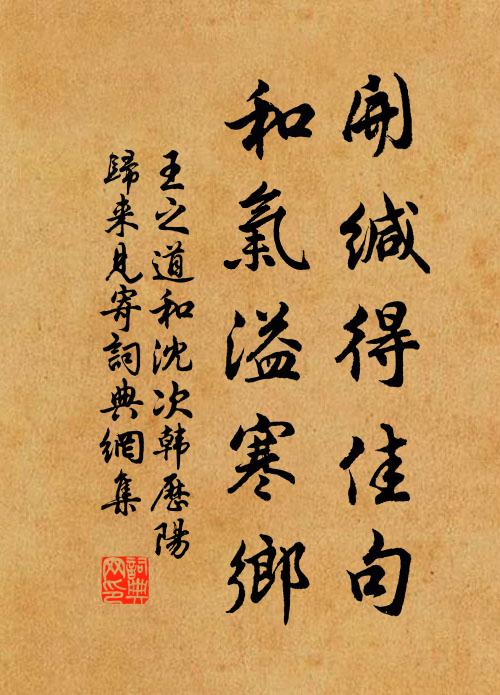 開緘得佳句
和氣溢寒鄉
王之道和沈次韩歷陽
歸来見寄詞典網集
詞典网印